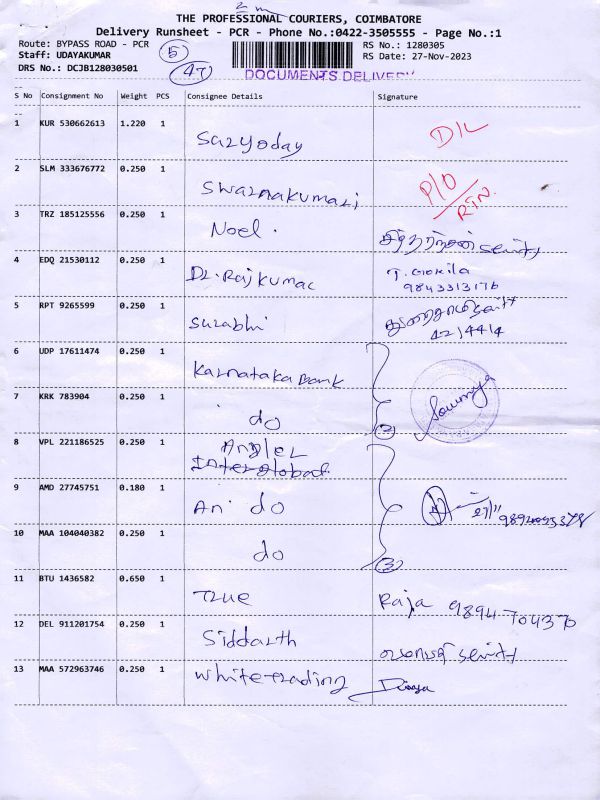 2 m
THE PROFESSIONAL COURIERS, COIMBATORE
Delivery Runsheet - PCR - Phone No.:0422-3505555 - Page No.:1
Route: BYPASS ROAD - PCR 5 RS No.: 1280305
Staff: UDAYAKUMAR RS Date: 27-Nov-2023
DRS No.: DCJB128030501 47 DOCUMENTS DELIVERY
S No Consignment No Weight PCS Consignee Details Signature
1 KUR 530662613 1.220 1 Saryoday D/L
2 SLM 333676772 0.250 1 Swarnakumari P/O RTN.
3 TRZ 185125556 0.250 1 Noel.
4 EDQ 21530112 0.250 1 Dr. Rajkumar T. Gokila
9843313176
5 RPT 9265599 0.250 1 Surabhi
4214414
6 UDP 17611474 0.250 1 Karnataka Bank
7 KRK 783904 0.250 1 do 2 Sowmya
8 VPL 221186525 0.250 1 Angler
Interglobal
9 AMD 27745751 0.180 1 An do
10 MAA 104040382 0.250 1 do 3
11 BTU 1436582 0.650 1 True Raja 9894704370
12 DEL 911201754 0.250 1 Siddarth
13 MAA 572963746 0.250 1 White trading Divya